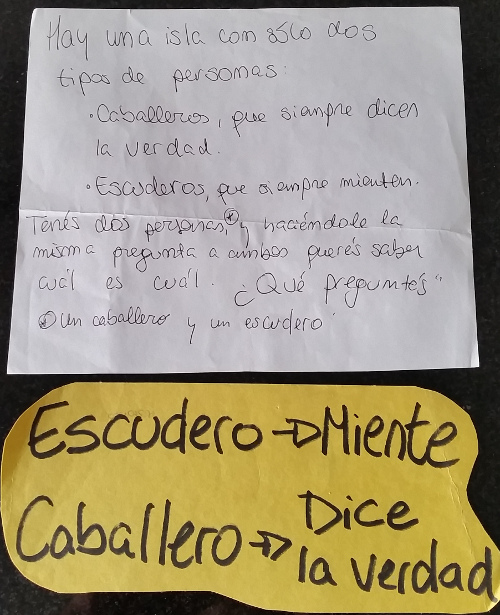 Hay una isla con sólo dos
tipos de personas:
• Caballeros, que siempre dicen
la verdad.
• Escuderos, que siempre mienten.
Tenés dos personas,⊛ y haciéndole la
misma pregunta a ambos querés saber
cuál es cuál. ¿Qué preguntás?
⊛ un caballero y un escudero
Escudero → Miente
Caballero → Dice
la verdad